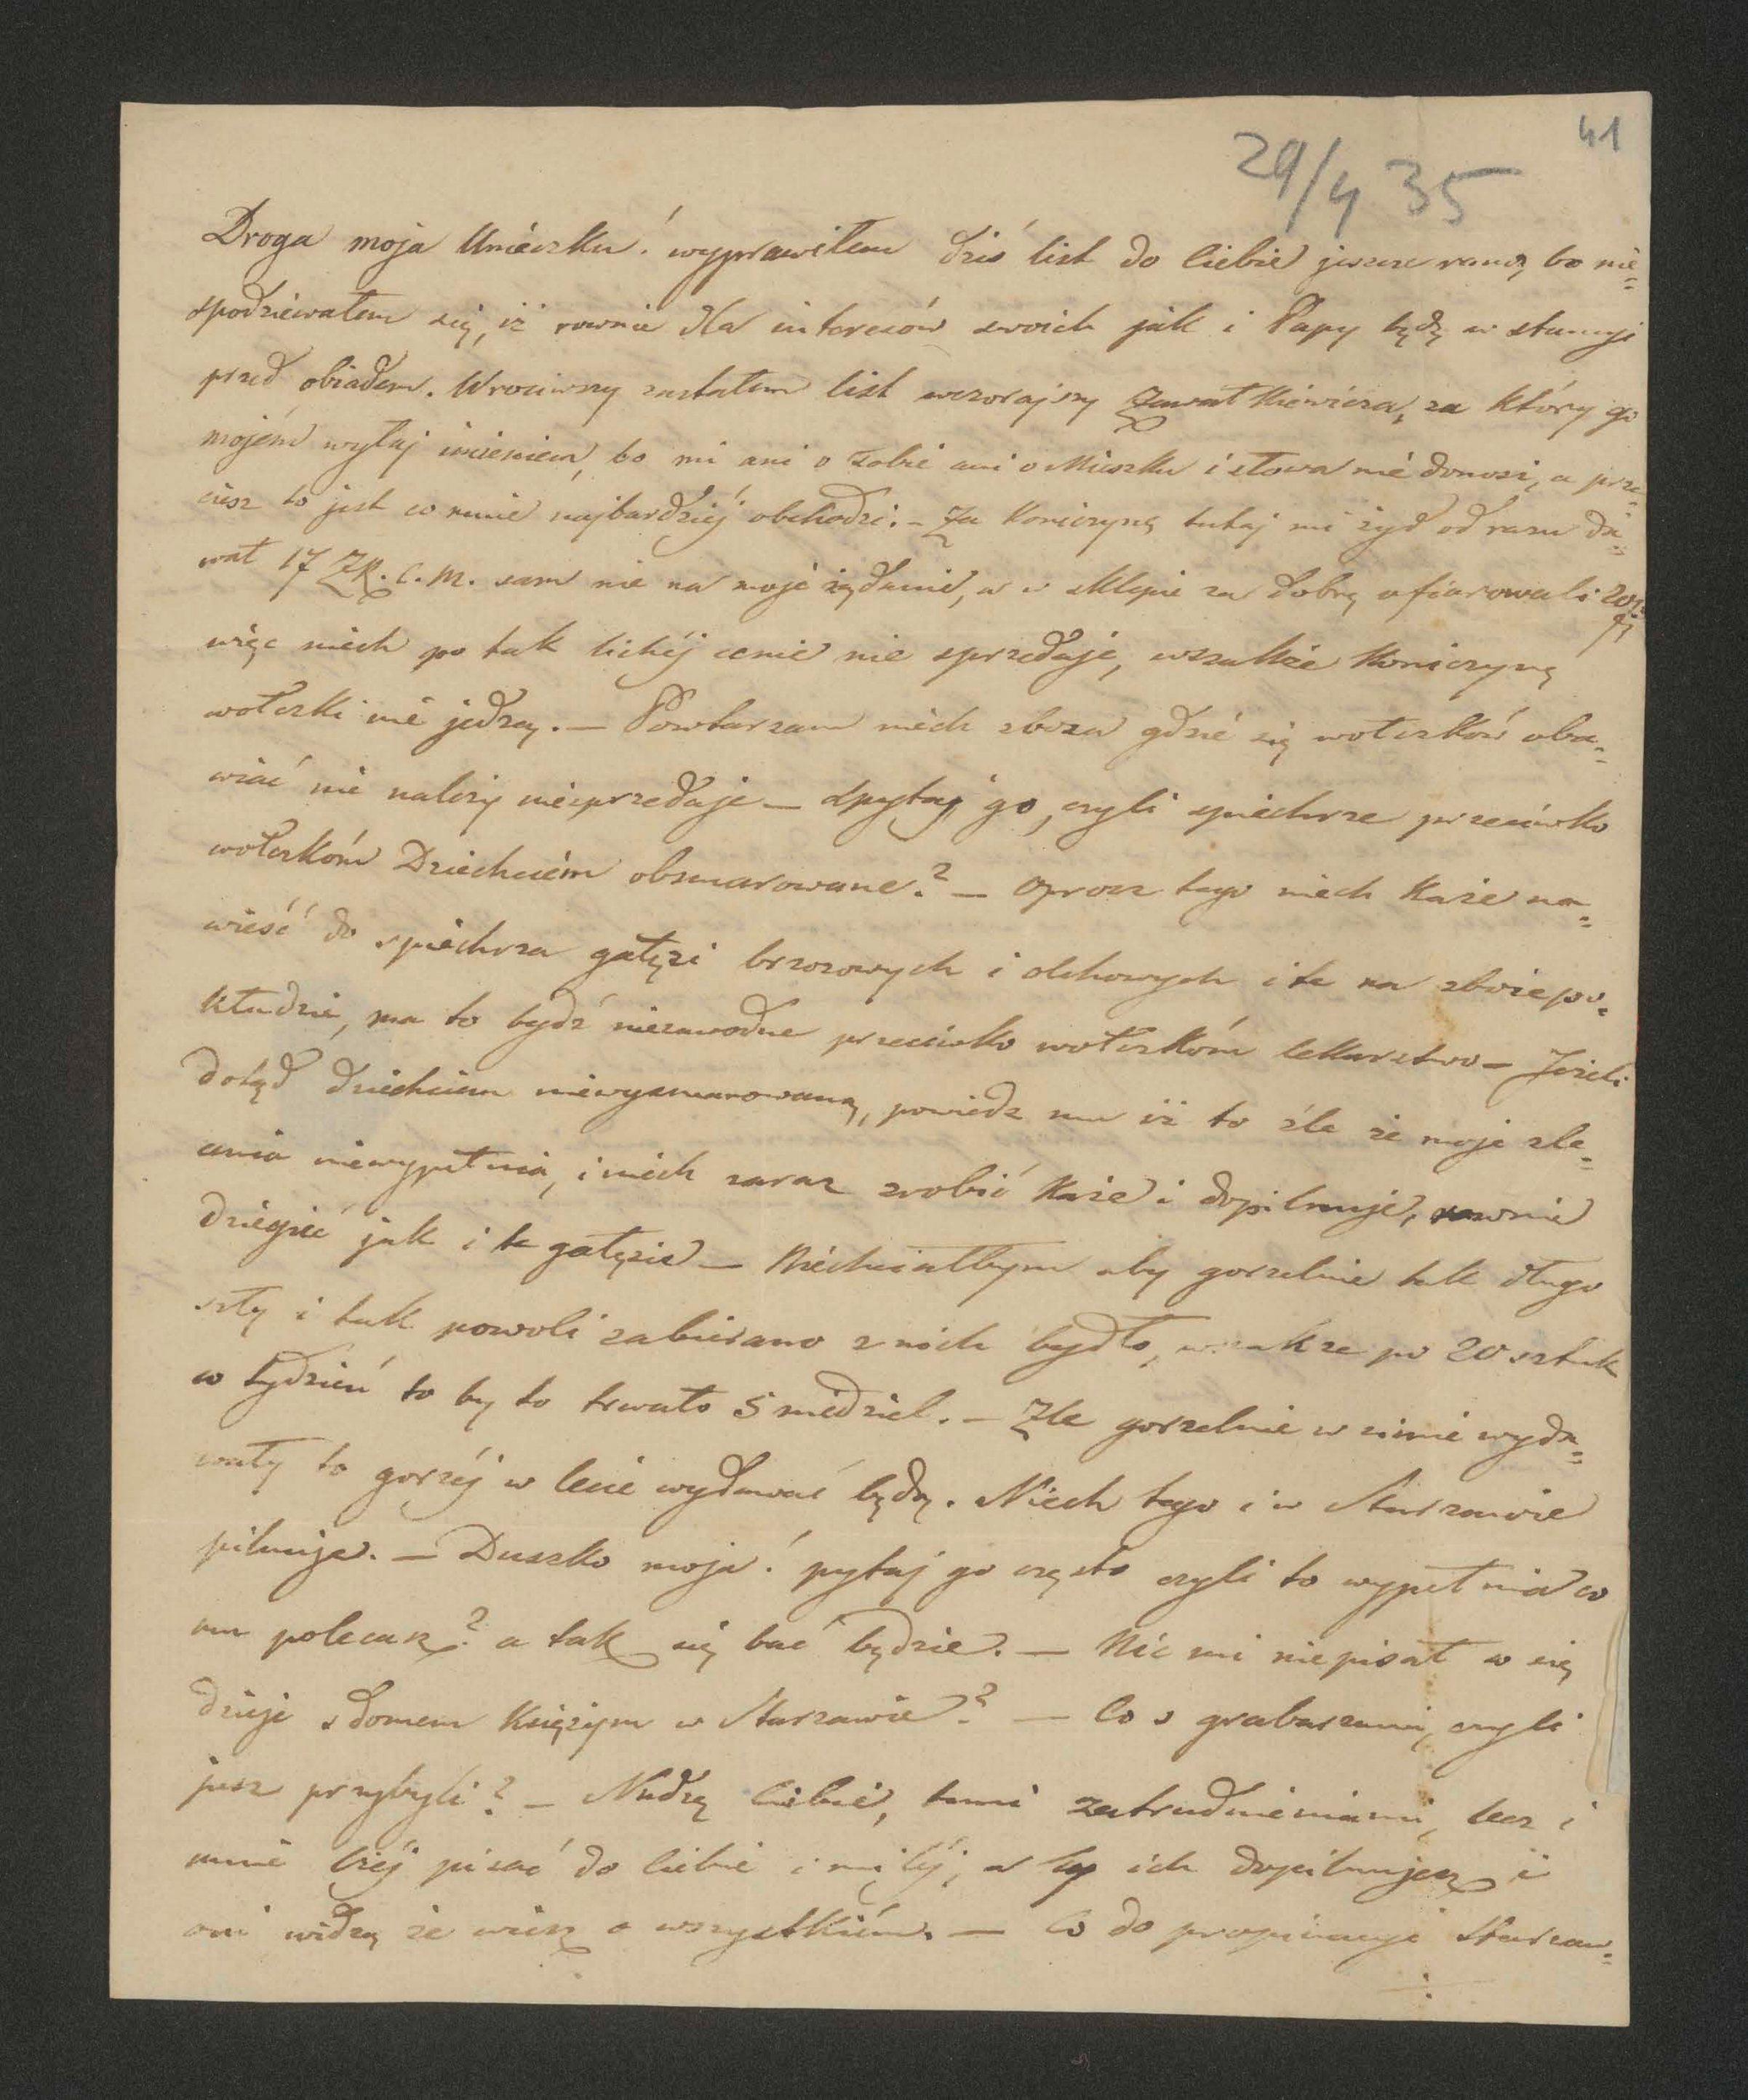 41
29/4 35
Droga moja Unieczku! wyprawiłem dziś list do Ciebie jeszcze rano, bo nie=
spodziewałem się, iż rownie dla interesów swoich jak i Papy będę w stancyi
przed obiadem. Wrociwszy zastałem list wczorajszy Zawałkiewicza, za który go
mojém wyłaj imieniem, bo mi ani o Tobie ani o Mieszku i słowa nie donosi, a prze=
ciesz to jest co mnie najbardziéj obchodzi. – Za Koniczynę tutaj mi żyd od razu da=
wał 17 ZR. C. M. sam nie na moje żądanie, a w sklepie za dobrą ofiarowali 20
więc niech po tak lichéj cenie nie sprzedaje, wszakże Koniczynę
wołczki nie jedzą. – Powtarzam niech zboża gdzie się wołczków oba=
wiać nie należy niesprzedaje – Spytaj go, czyli spichrze przeciwko
wołczkóm Dziechciém obsmarowane? – Oprocz tego niech każe na=
wieść do spichrza gałęzi brzozowych i olchowych i te na zboże po=
kładzie, ma to bydź niezawodne przeciwko wołczkóm lekarstwo – Jeżeli
dotąd dziechciem niewysmarowane, powiedz mu iż to źle że moje zle=
cenia niewypełnia, i niech zaraz zrobić każe i dopilnuje, rownie
dziegieć jak i te gałęzie – Niechciałbym aby gorzelnie tak długo
szły i tak powoli zabierano z nich bydło, wszakże po 20 sztuk
w tydzień to by to trwało 5 niedziel. – Źle gorzelnie w zimie wyda=
wały to gorzéj w lecie wydawać będą. Niech tego i w Starzawie
pilnuje. – Duszko moja! pytaj go często czyli to wypełnia co
mu polecasz? a tak się bać będzie. – Nic mi niepisał co się
dzieje z domem Księżym w Starzawie? – Co z grabarzami, czyli
jusz przybyli? – Nudzę Ciebie, temi zatrudnieniami, lecz i
mnie lżéj pisać do Ciebie i miléj, a ty ich dopilnujesz i
oni widzą że wiesz o wszystkiém. – Co do propinacyi Starzaw=